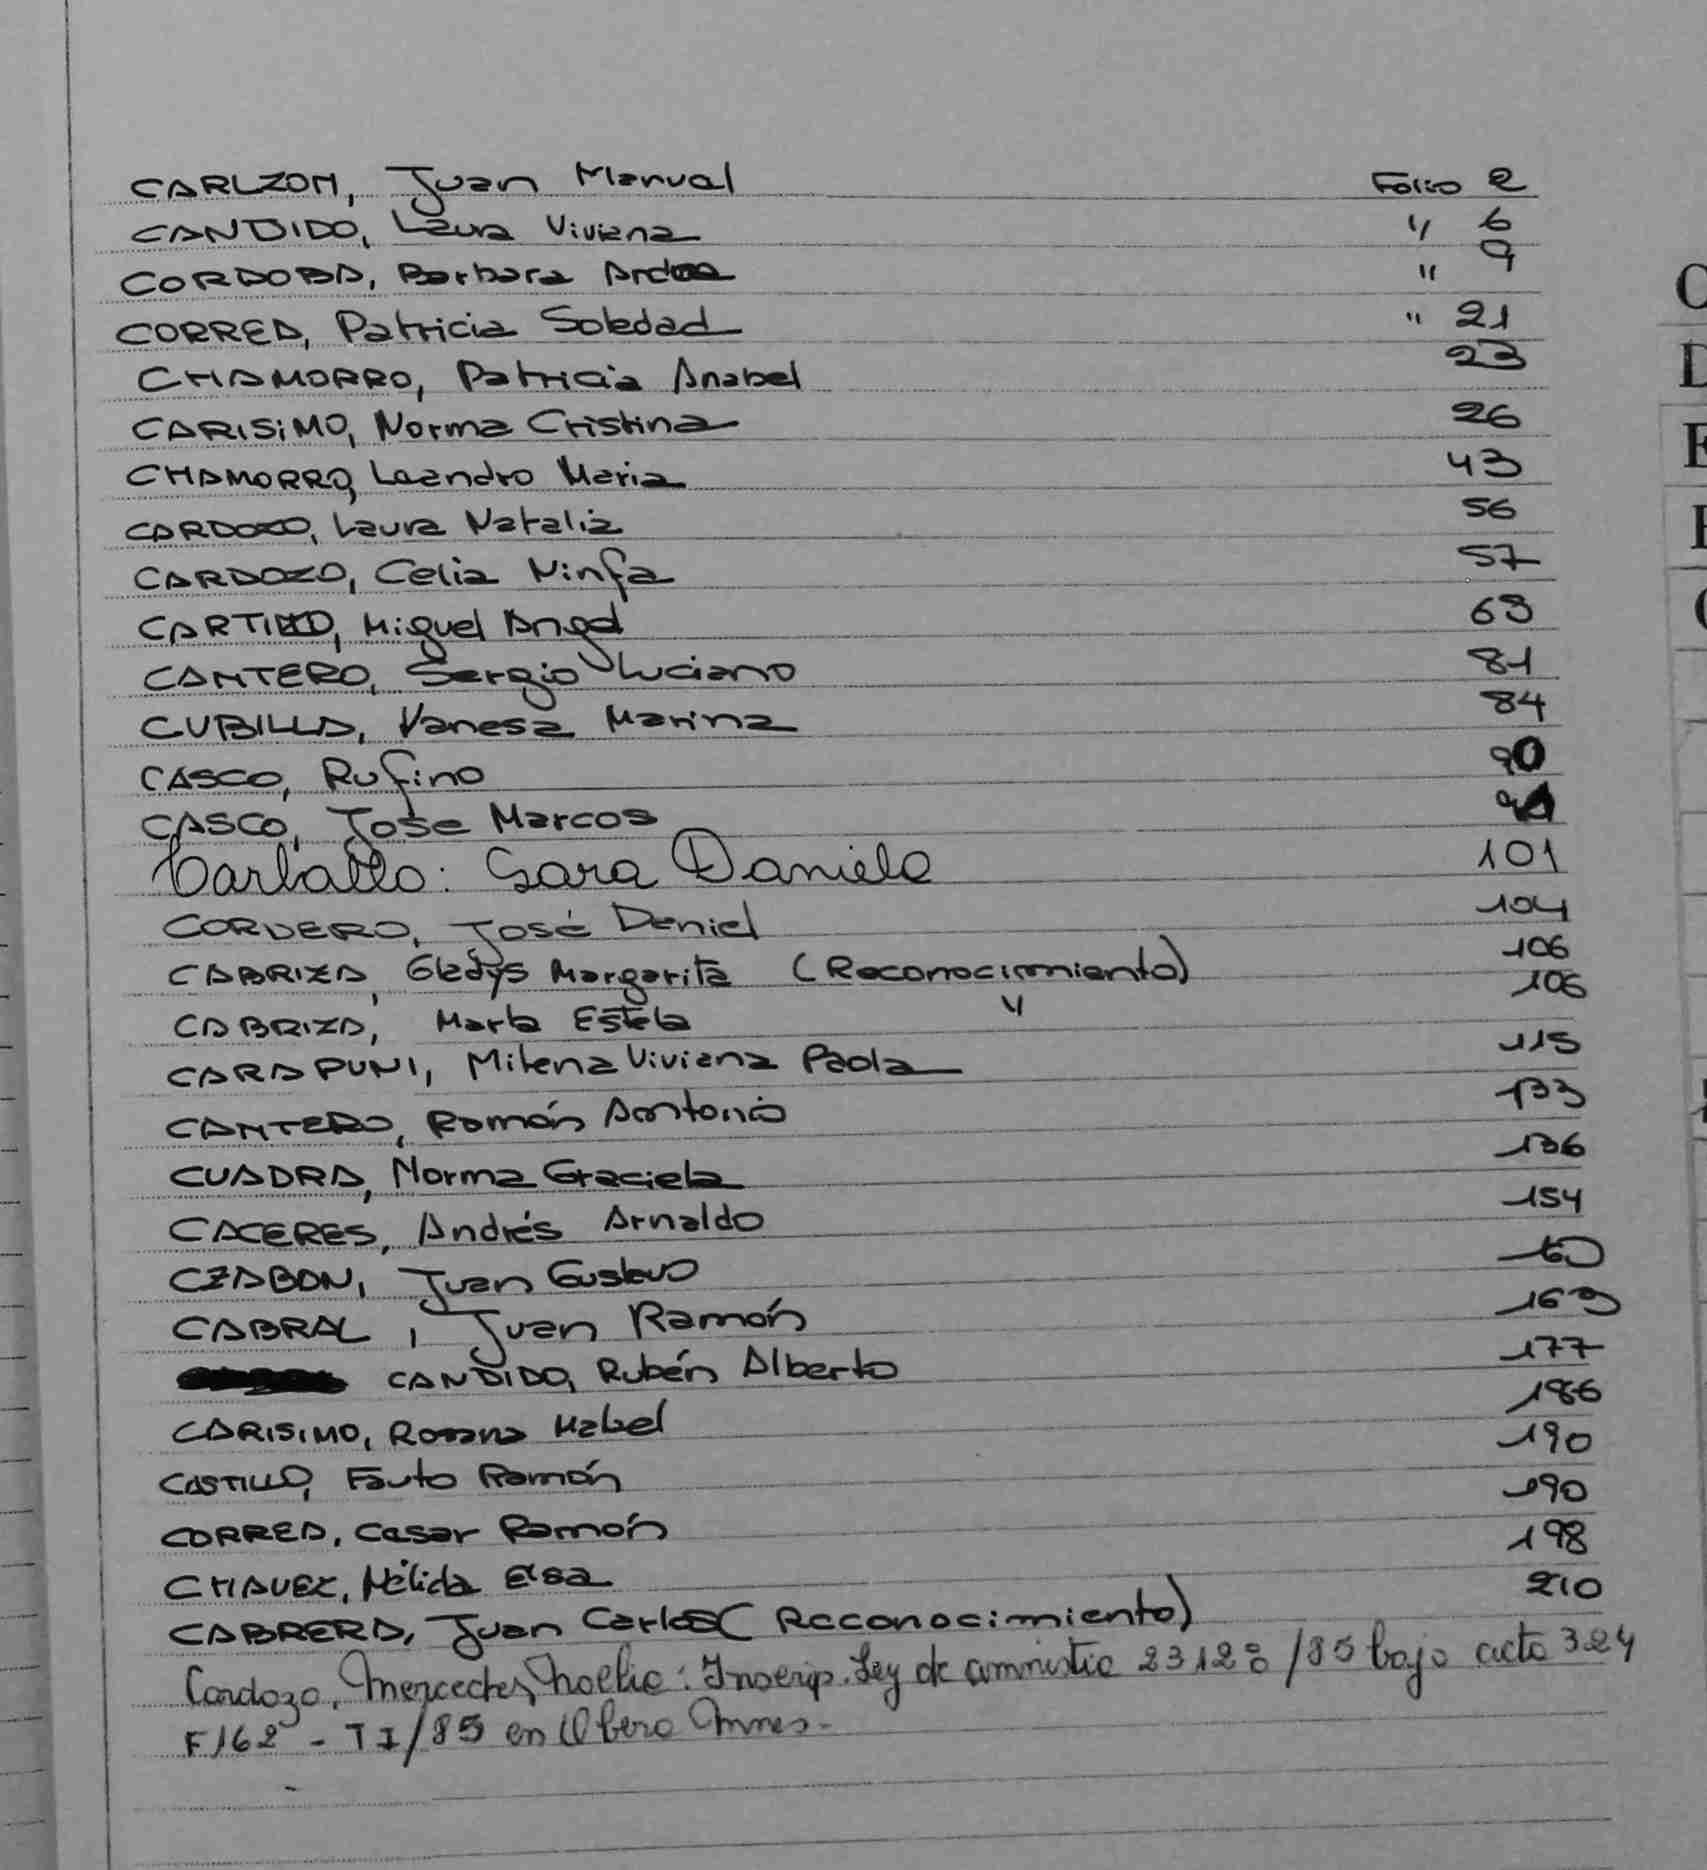 CARLZON, Juan Manual Folio 2
CANDIDO, Laura Viviana " 6
CORDOBA, Barbara " 9
CORREA, Patricia Soledad " 21
CHAMORRO, Patricia Anabel 23
CARISIMO, Norma Cristina 26
CHAMORRO, Leandro Maria 43
CARDOZO, Laura Natalia 56
CARDOZO, Celia Ninfa 57
Miguel Angel 69
CANTERO, Sergio Luciano 81
CUBILLA, Vanesa Marina 84
CASCO, Rufino 90
CASCO, Jose Marcos
Carballo: Sara Daniela 101
CORDERO, José Daniel 104
CABRIZA, Gladys Margarita (Reconocimiento) 106
CABRIZA, Marta Estela " 106
CARAPUNI, Milena Viviana Paola 115
CANTERO, Román Antonio 133
CUADRA, Norma Graciela 136
CACERES, Andrés Arnaldo 154
CZABON, Juan Gustavo 160
CABRAL, Juan Ramón 163
CANDIDO, Rubén Alberto 177
CARISIMO, Rosana Mabel 186
CASTILLO, Fauto Ramón 190
CORREA, Cesar Ramón 190
CHAVEZ, Nélida Elsa 198
CABRERA, Juan Carlos (Reconocimiento) 210
Cardozo, Mercedes Noelia: Inscrip. Ley de amnistia 23128/85 bajo acta 324
F 162 - T I/85 en Obera Mnes.-
C
D
E